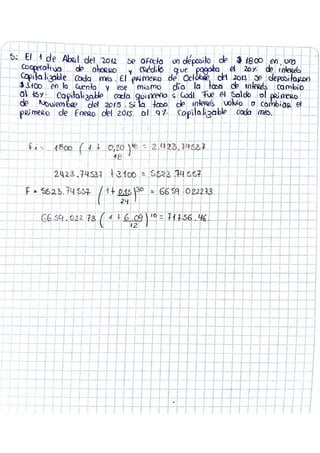 5. El 1 de Abril del 2012 se afecta un déposito de $ 1800 en una
cooperativa de ahorro y crédito que pagaba el 20% de interés
capitalizable cada mes. El primero de Octubre del 2013 se depositaron
$3100 en la cuenta y ese mismo día la tasa de interés cambio
al 15% capitalizable cada quincena ¿ Cuál fue el Saldo al primero
de Noviembre del 2015. Si la tasa de interés volvio a cambiar el
primero de Enero del 2015 al 9% capitalizable cada mes.
1800 ( 1 + 0,20 / 18 )¹⁸ = 2.423,74557
2423.74557 + 3100 = 5523.74557
F = 5523.74557 ( 1 + 0.15 / 24 )³⁰ = 6659.022273
6659.022 73 ( 1 + 0.09 / 12 )¹⁰ = 71756.46